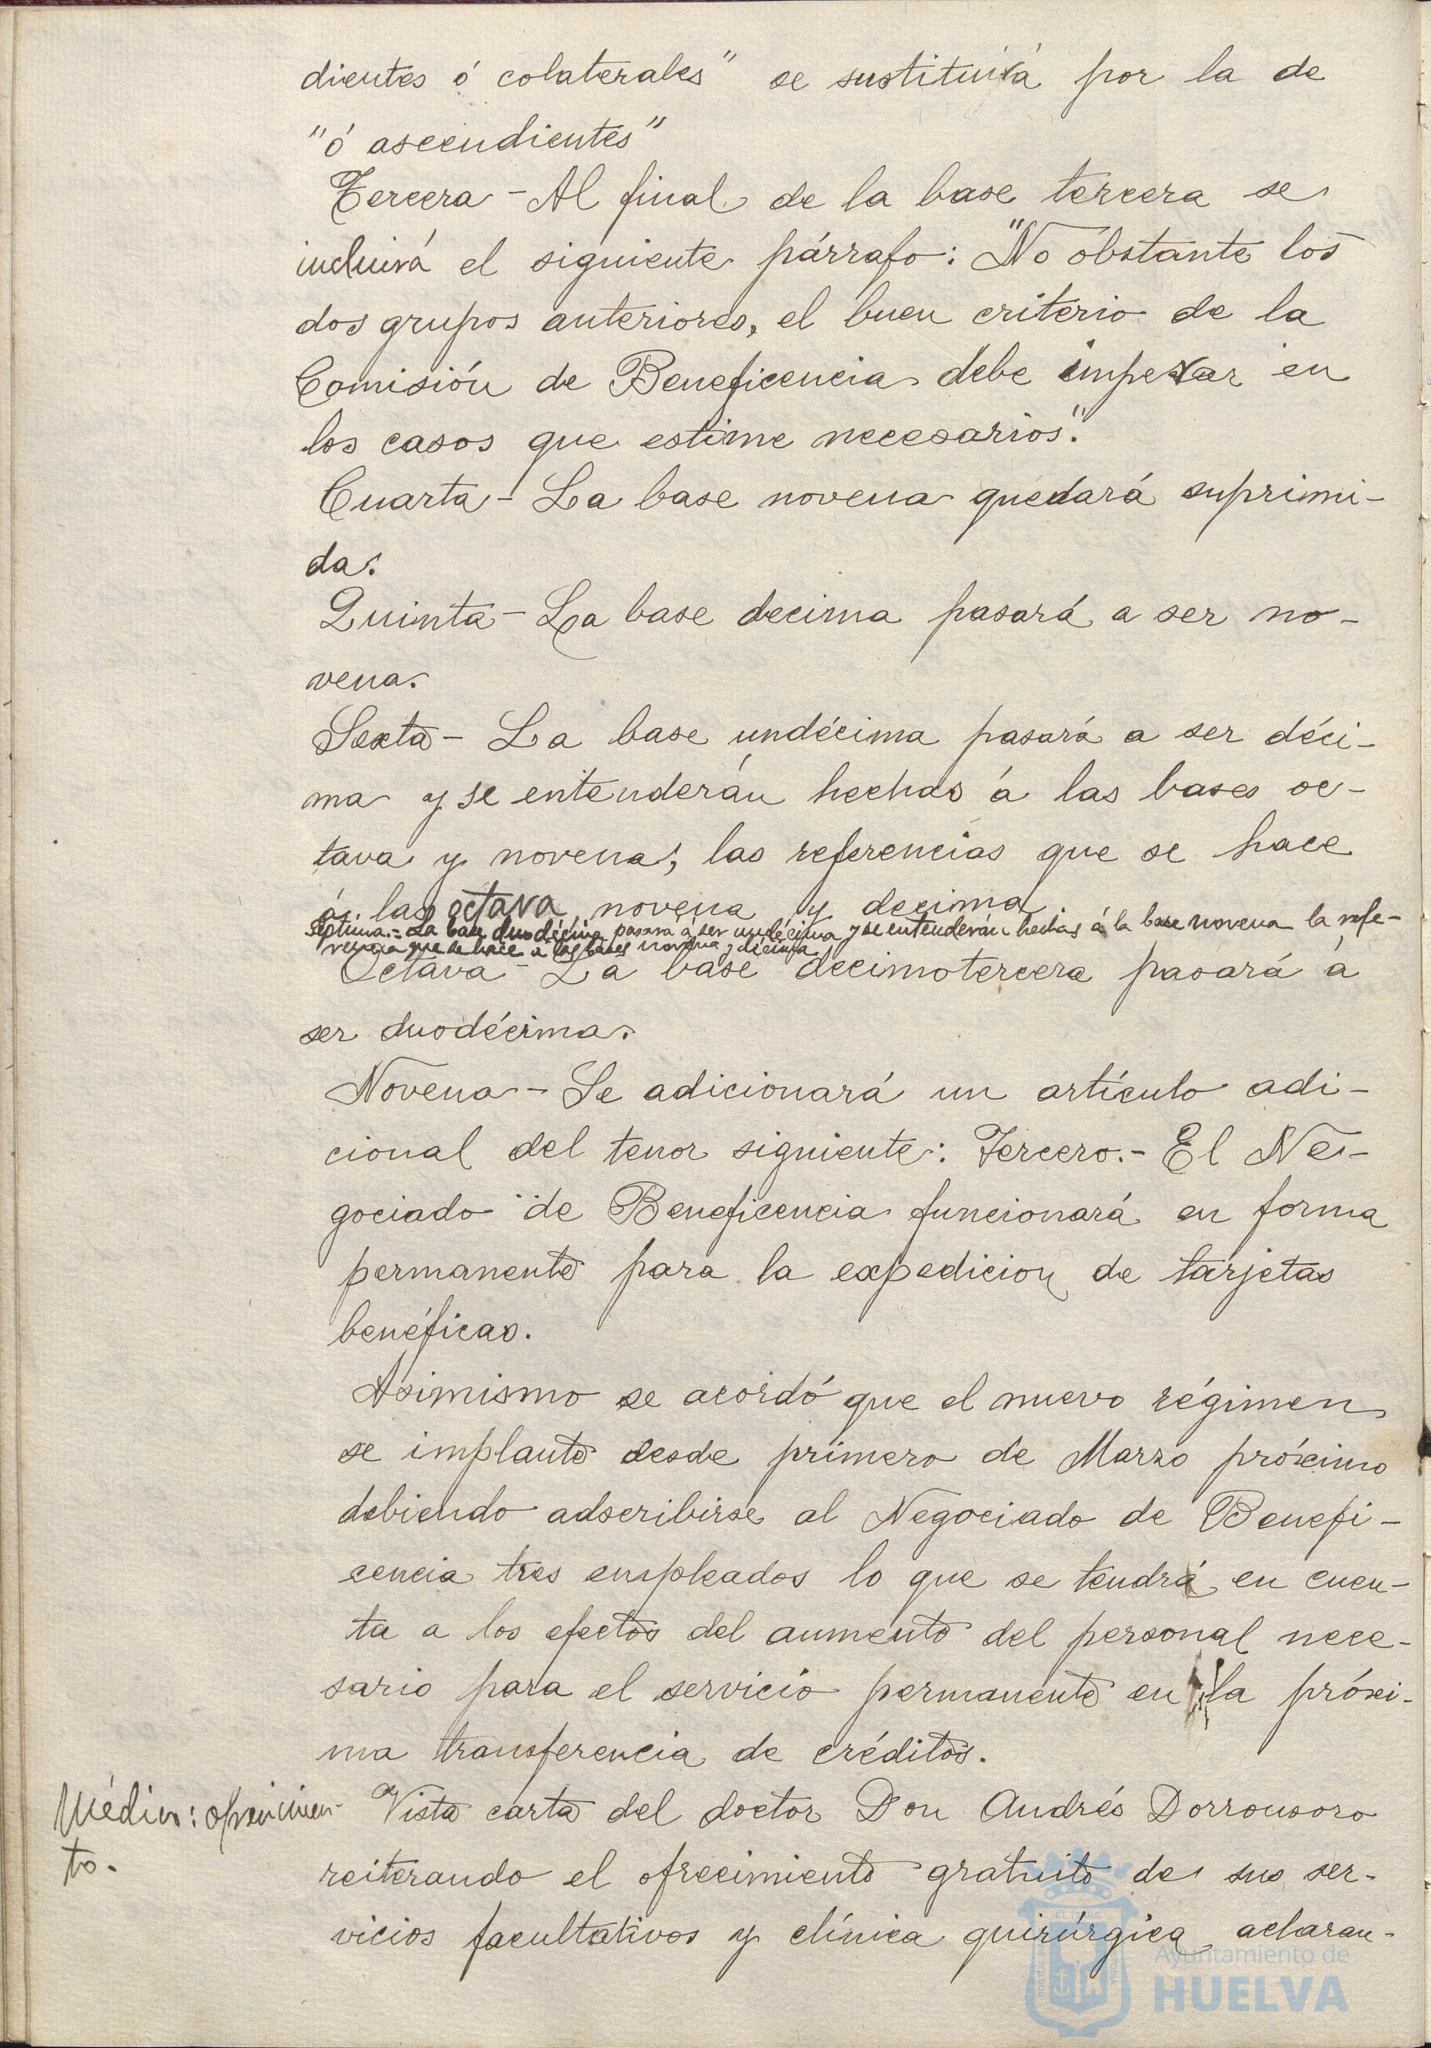 dientes ó colaterales" se sustituirá por la de
"ó ascendientes"
Tercera - Al final de la base tercera se
incluirá el siguiente párrafo: "No obstante los
dos grupos anteriores, el buen criterio de la
Comisión de Beneficencia debe imperar en
los casos que estime necesarios".
Cuarta - La base novena quedará suprimi-
da.
Quinta - La base decima pasará a ser no-
vena.
Sexta - La base undécima pasará a ser déci-
ma y se entenderán hechas á las bases oc-
tava y novena, las referencias que se hace
á las octava, novena y decima.
Séptima.- La base duodécima pasará á ser undécima y se entenderán hechas á la base novena la refe-
rencia que se hace á las bases novena y décima.
Octava - La base decimotercera pasará á
ser duodécima.
Novena - Se adicionará un artículo adi-
cional del tenor siguiente: Tercero.- El Ne-
gociado de Beneficencia funcionará en forma
permanente para la expedicion de tarjetas
benéficas.
Asimismo se acordó que el nuevo régimen
se implante desde primero de Marzo próximo
debiendo adscribirse al Negociado de Benefi-
cencia tres empleados lo que se tendrá en cuen-
ta a los efectos del aumento del personal nece-
sario para el servicio permanente en la próxi-
ma transferencia de créditos.
Médico: ofrecimien-
to.
Vista carta del doctor Don Andrés Dorronsoro
reiterando el ofrecimiento gratuito de sus ser-
vicios facultativos y clínica quirúrgica, aclaran-
Ayuntamiento de
HUELVA